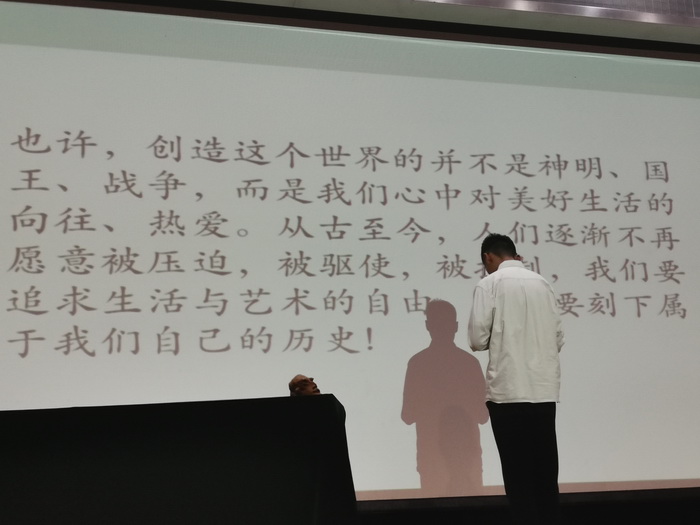 也许，创造这个世界的并不是神明、国
王、战争，而是我们心中对美好生活的
向往、热爱。从古至今，人们逐渐不再
愿意被压迫，被驱使，被，我们要
追求生活与艺术的自由要刻下属
于我们自己的历史!